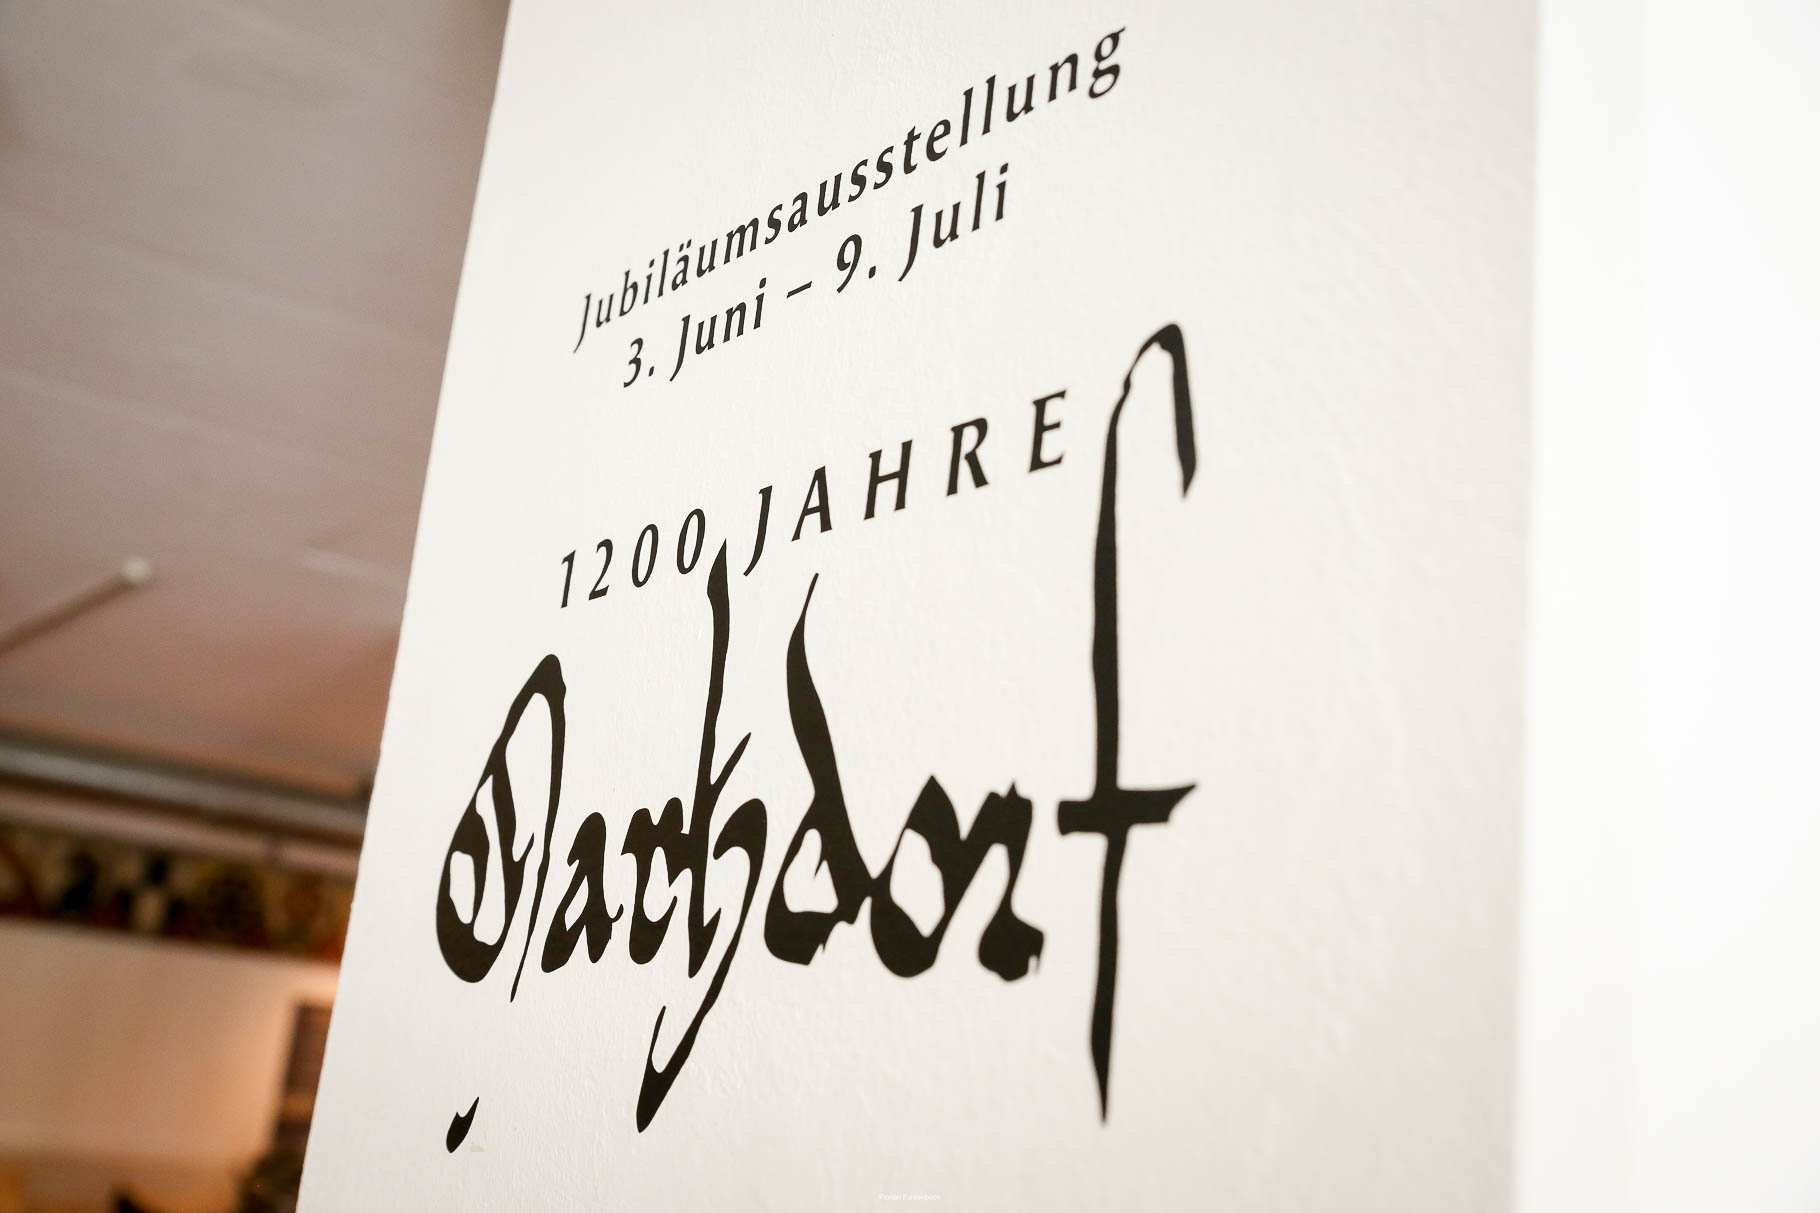 Jubiläumsausstellung
3. Juni – 9. Juli
1200 JAHRE
Markdorf